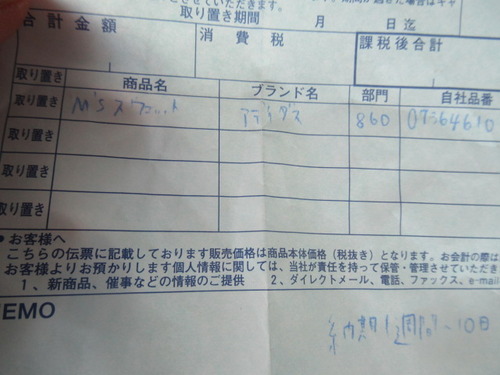 させていただきます。
取り置き期間 月 日迄
合計金額 消費税 課税後合計
取り置き 商品名 ブランド名 部門 自社品番
取り置き M'Sスウェット アディダス 860 07364610
取り置き
取り置き
取り置き
●お客様へ
こちらの伝票に記載しております販売価格は商品本体価格(税抜き)となります。お会計の際は
お客様よりお預かりします個人情報に関しては、当社が責任を持って保管・管理させていただき
1、新商品、催事などの情報のご提供 2、ダイレクトメール、電話、ファックス、e-mail
MEMO
納期1週間~10日